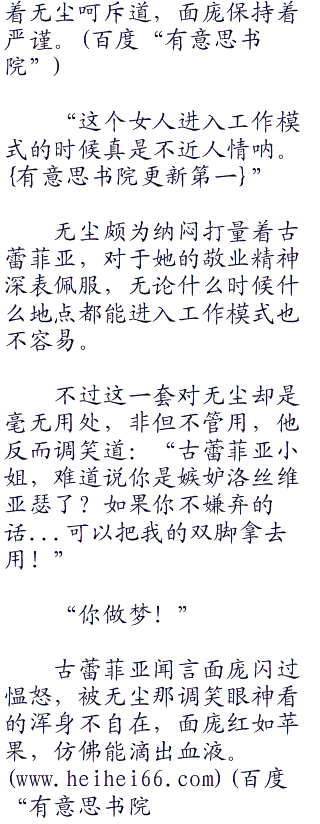 着无尘呵斥道，面庞保持着
严谨。(百度“有意思书
院”)
“这个女人进入工作模
式的时候真是不近人情呐。
{有意思书院更新第一}”
无尘颇为纳闷打量着古
蕾菲亚，对于她的敬业精神
深表佩服，无论什么时候什
么地点都能进入工作模式也
不容易。
不过这一套对无尘却是
毫无用处，非但不管用，他
反而调笑道：“古蕾菲亚小
姐，难道说你是嫉妒洛丝维
亚瑟了？如果你不嫌弃的
话...可以把我的双脚拿去
用！”
“你做梦！”
古蕾菲亚闻言面庞闪过
愠怒，被无尘那调笑眼神看
的浑身不自在，面庞红如苹
果，仿佛能滴出血液。
(www.heihei66.com)(百度
“有意思书院